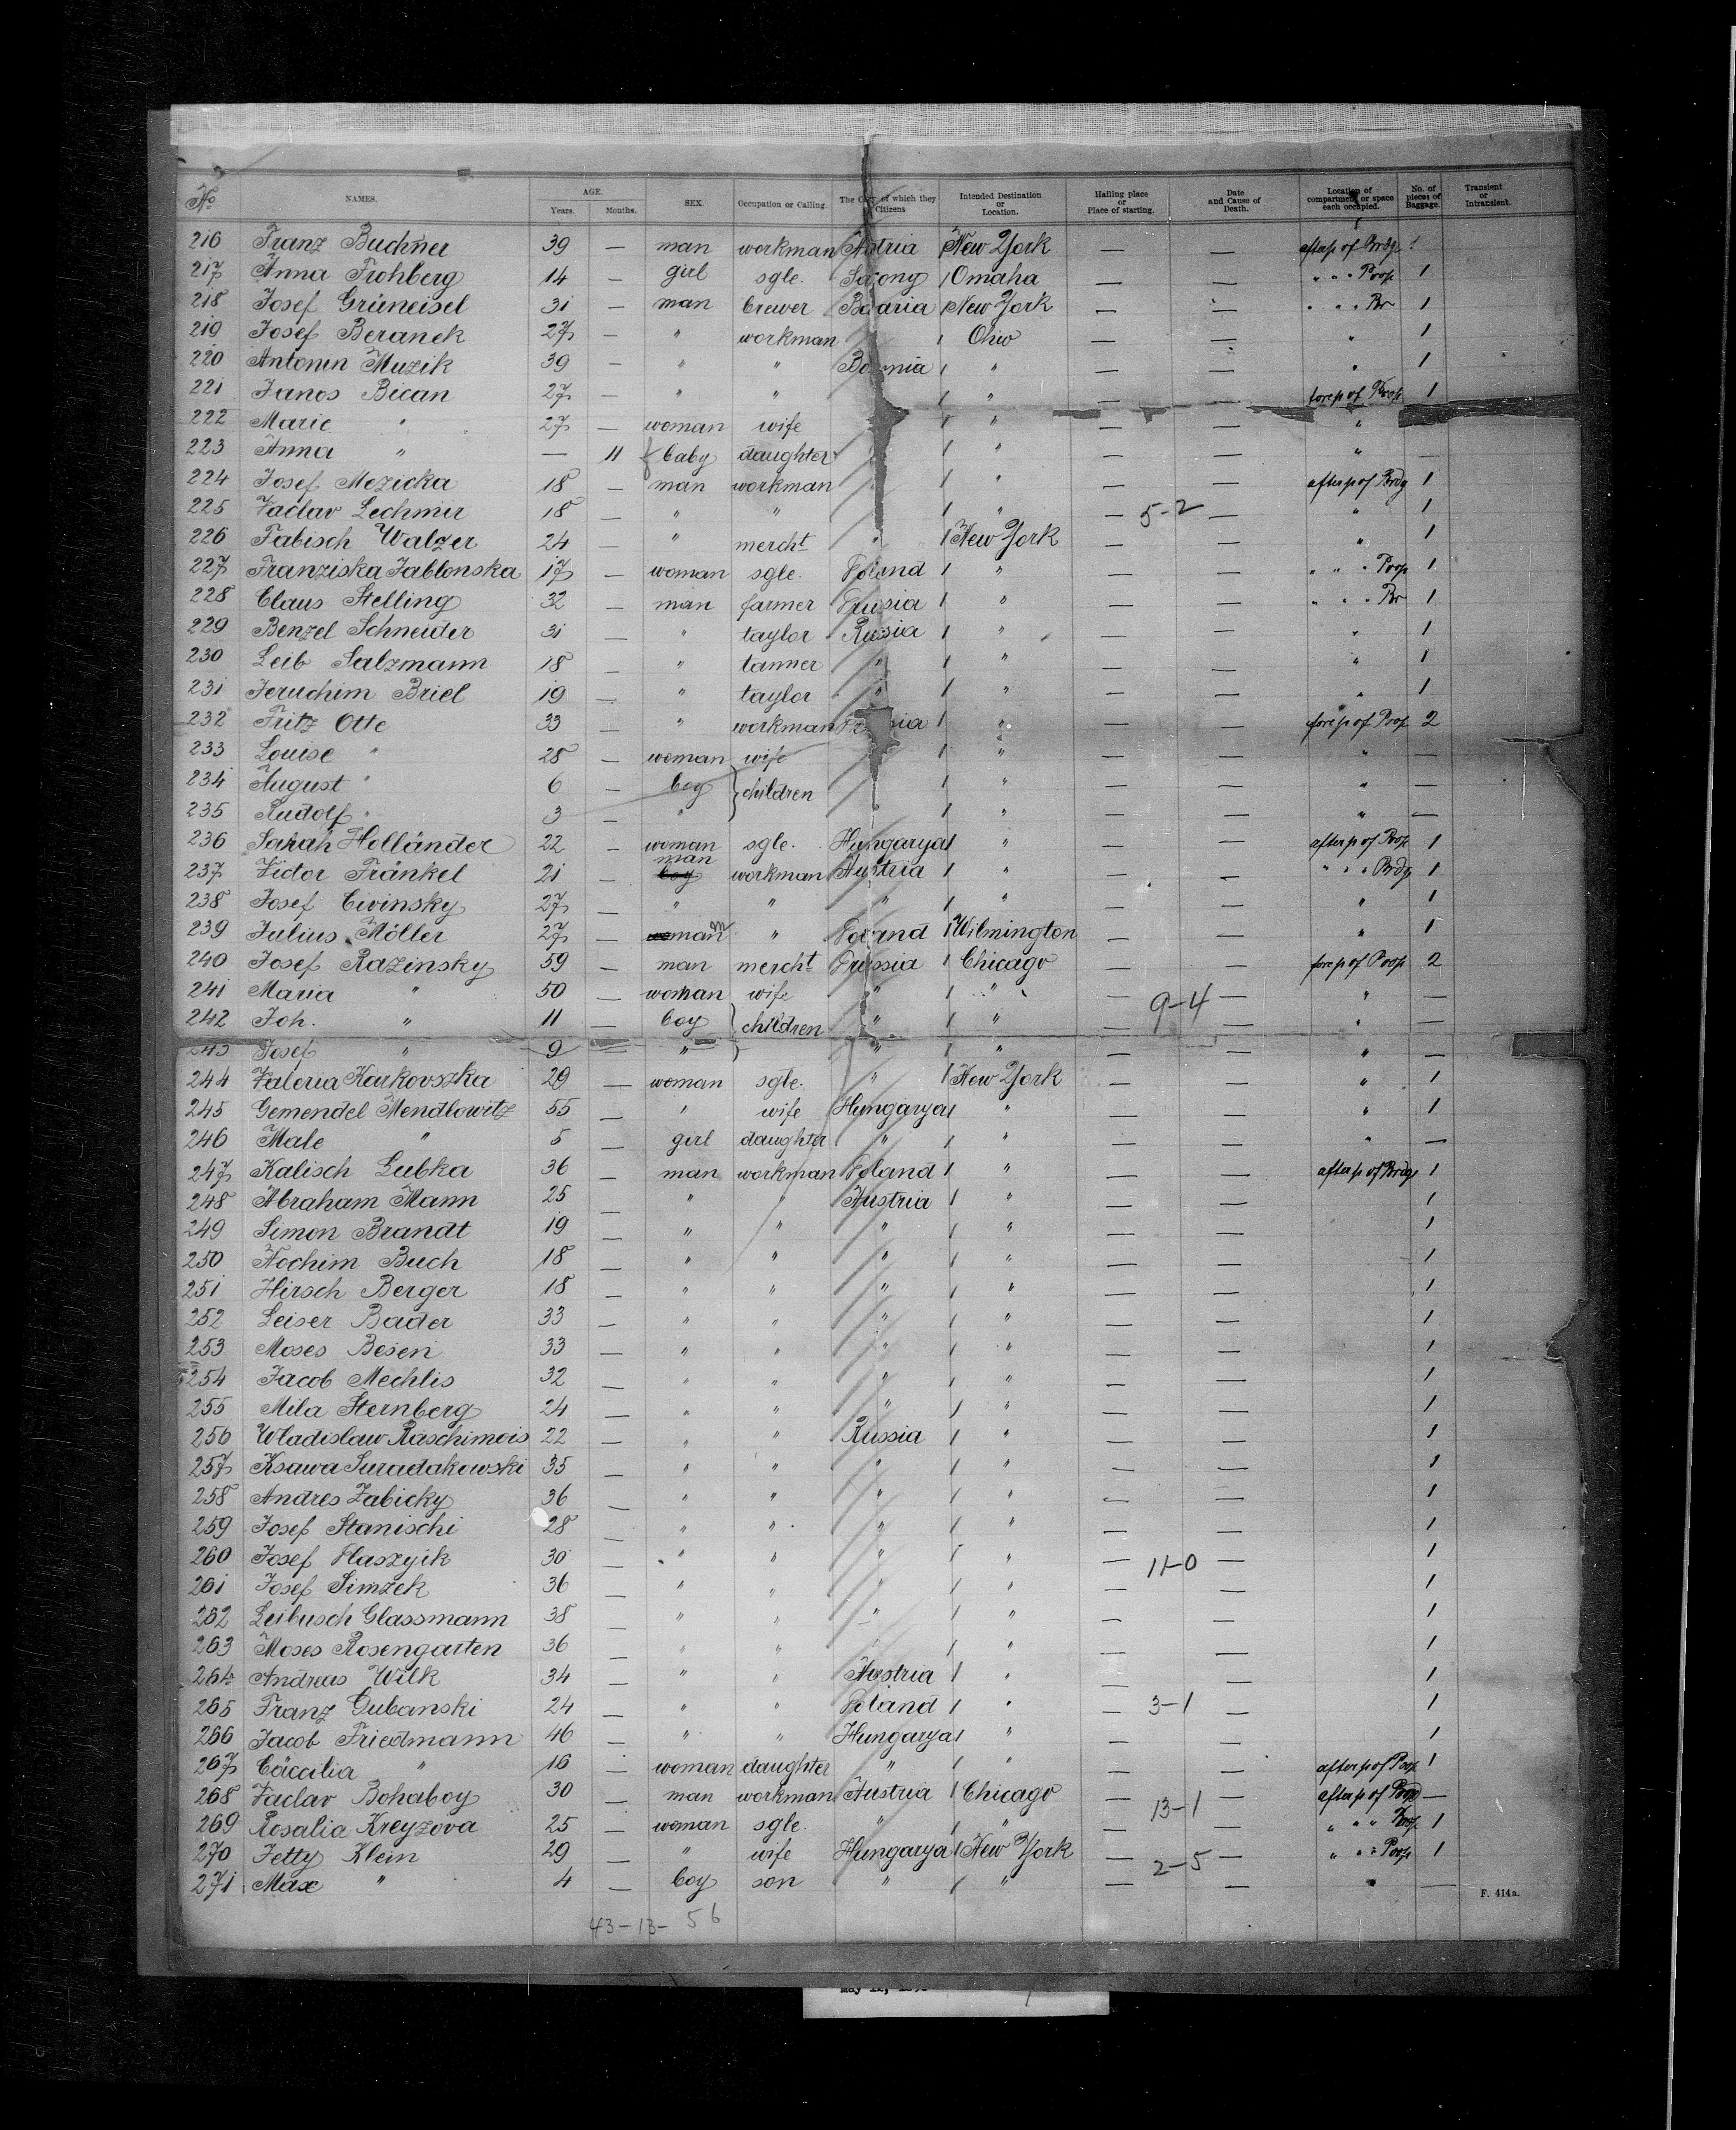 No. NAMES. AGE. Years. Months. SEX. Occupation or Calling. The Country of which they Citizens Intended Destination or Location. Hailing place or Place of starting. Date and Cause of Death. Location of compartment or space each occupied. No. of pieces of Baggage. Transient or Intransient.
216 Franz Buchner 39 — man workman Austria New York — — afterp of Brdg 1
217 Anna Frohberg 14 — girl sgle. Saxony Omaha — — " " " Poop 1
218 Josef Grüneisel 31 — man brewer Bavaria New York — — " " " Br 1
219 Josef Beranek 27 — " workman Ohio — — " 1
220 Antonin Muzik 39 — " " Bohemia " — — " 1
221 Janos Bican 27 — " " " — — forep of Poop 1
222 Marie " 27 — woman wife " — — "
223 Anna " — 11 baby daughter " — — " —
224 Josef Mozicka 18 — man workman " " — — afterp of Brdg 1
225 Vaclav Lechmer 18 — " " " — 5-2 — " 1
226 Tabisch Walzer 24 — " mercht " New York — — " 1
227 Franziska Jablonska 17 — woman sgle. Poland " — — " " " Poop 1
228 Claus Stelling 32 — man farmer Prussia " — — " " " Br 1
229 Benzel Schneider 31 — " taylor Russia " — — " 1
230 Leib Salzmann 18 — " tanner " " — — " 1
231 Jeruchim Briel 19 — " taylor " " — — " 1
232 Fritz Otte 33 — " workman Prussia " — — forep of Poop 2
233 Louise " 28 — woman wife " — — " —
234 August " 6 — boy children " — — " —
235 Rudolf " 3 — " " " — — " —
236 Sarah Holländer 22 — woman sgle. Hungarya " — — afterp of Poop 1
237 Vidor Fränkel 21 — man boy workman Austria " — — " " " Brdg 1
238 Josef Civinsky 27 — " " " " — — " 1
239 Julius Möller 27 — woman m " Poland Wilmington — — " 1
240 Josef Razinsky 59 — man mercht Prussia Chicago — — forep of Poop 2
241 Maria " 50 — woman wife " " — — " —
242 Joh. " 11 — boy children " " — 9-4 — " —
243 Josef " 9 — " " " — — " —
244 Valeria Karkovszka 29 — woman sgle. " New York — — " 1
245 Gemendel Mendlowitz 55 — " wife Hungarya " — — " 1
246 Male " 5 — girl daughter " " — — " —
247 Kalisch Lubka 36 — man workman Poland " — — afterp of Brdg 1
248 Abraham Mann 25 — " " Austria " — — 1
249 Simon Brandt 19 — " " " " — — 1
250 Nochim Buch 18 — " " " " — — 1
251 Hirsch Berger 18 — " " " " — — 1
252 Leiser Bader 33 — " " " " — — 1
253 Moses Besen 33 — " " " " — — 1
254 Jacob Mechlis 32 — " " " " — — 1
255 Mila Sternberg 24 — " " " " — — 1
256 Wladislaw Raschimois 22 — " " Russia " — — 1
257 Ksawa Suradakowski 35 — " " " " — — 1
258 Andres Zabicky 36 — " " " " — — 1
259 Josef Stanischi 28 — " " " " — — 1
260 Josef Plaszyik 30 — " " " " — 11-0 — 1
261 Josef Simzek 36 — " " " " — — 1
262 Leibusch Glassmann 38 — " " " " — — 1
263 Moses Rosengarten 36 — " " " " — — 1
264 Andreas Wilk 34 — " " Austria " — — 1
265 Franz Gubanski 24 — " " Poland " — 3-1 — 1
266 Jacob Friedmann 46 — " " Hungarya " — — 1
267 Cäcilia " 16 — woman daughter " " — — afterp of Poop 1
268 Vaclav Bohaboy 30 — man workman Austria Chicago — 13-1 — afterp of Brdg —
269 Rosalia Kreyzova 25 — woman sgle. " " — — " " " Poop 1
270 Jetty Klein 29 — " wife Hungarya New York — 2-5 — " " " Poop 1
271 Max " 4 — boy son " " — — " —
F. 414a.
43-13- 56